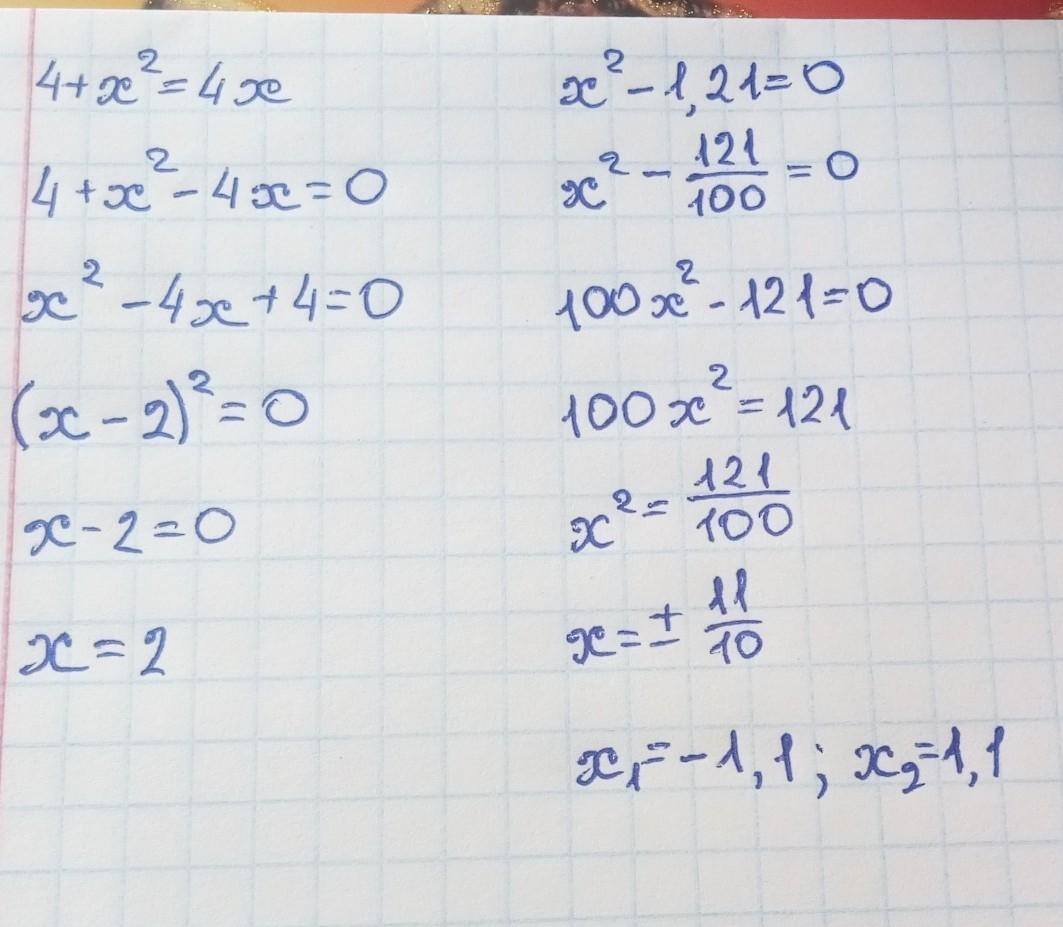 4+x²=4x
4+x²-4x=0
x²-4x+4=0
(x-2)²=0
x-2=0
x=2
x²-1,21=0
x²-121/100=0
100x²-121=0
100x²=121
x²=121/100
x=±11/10
x₁=-1,1; x₂=1,1